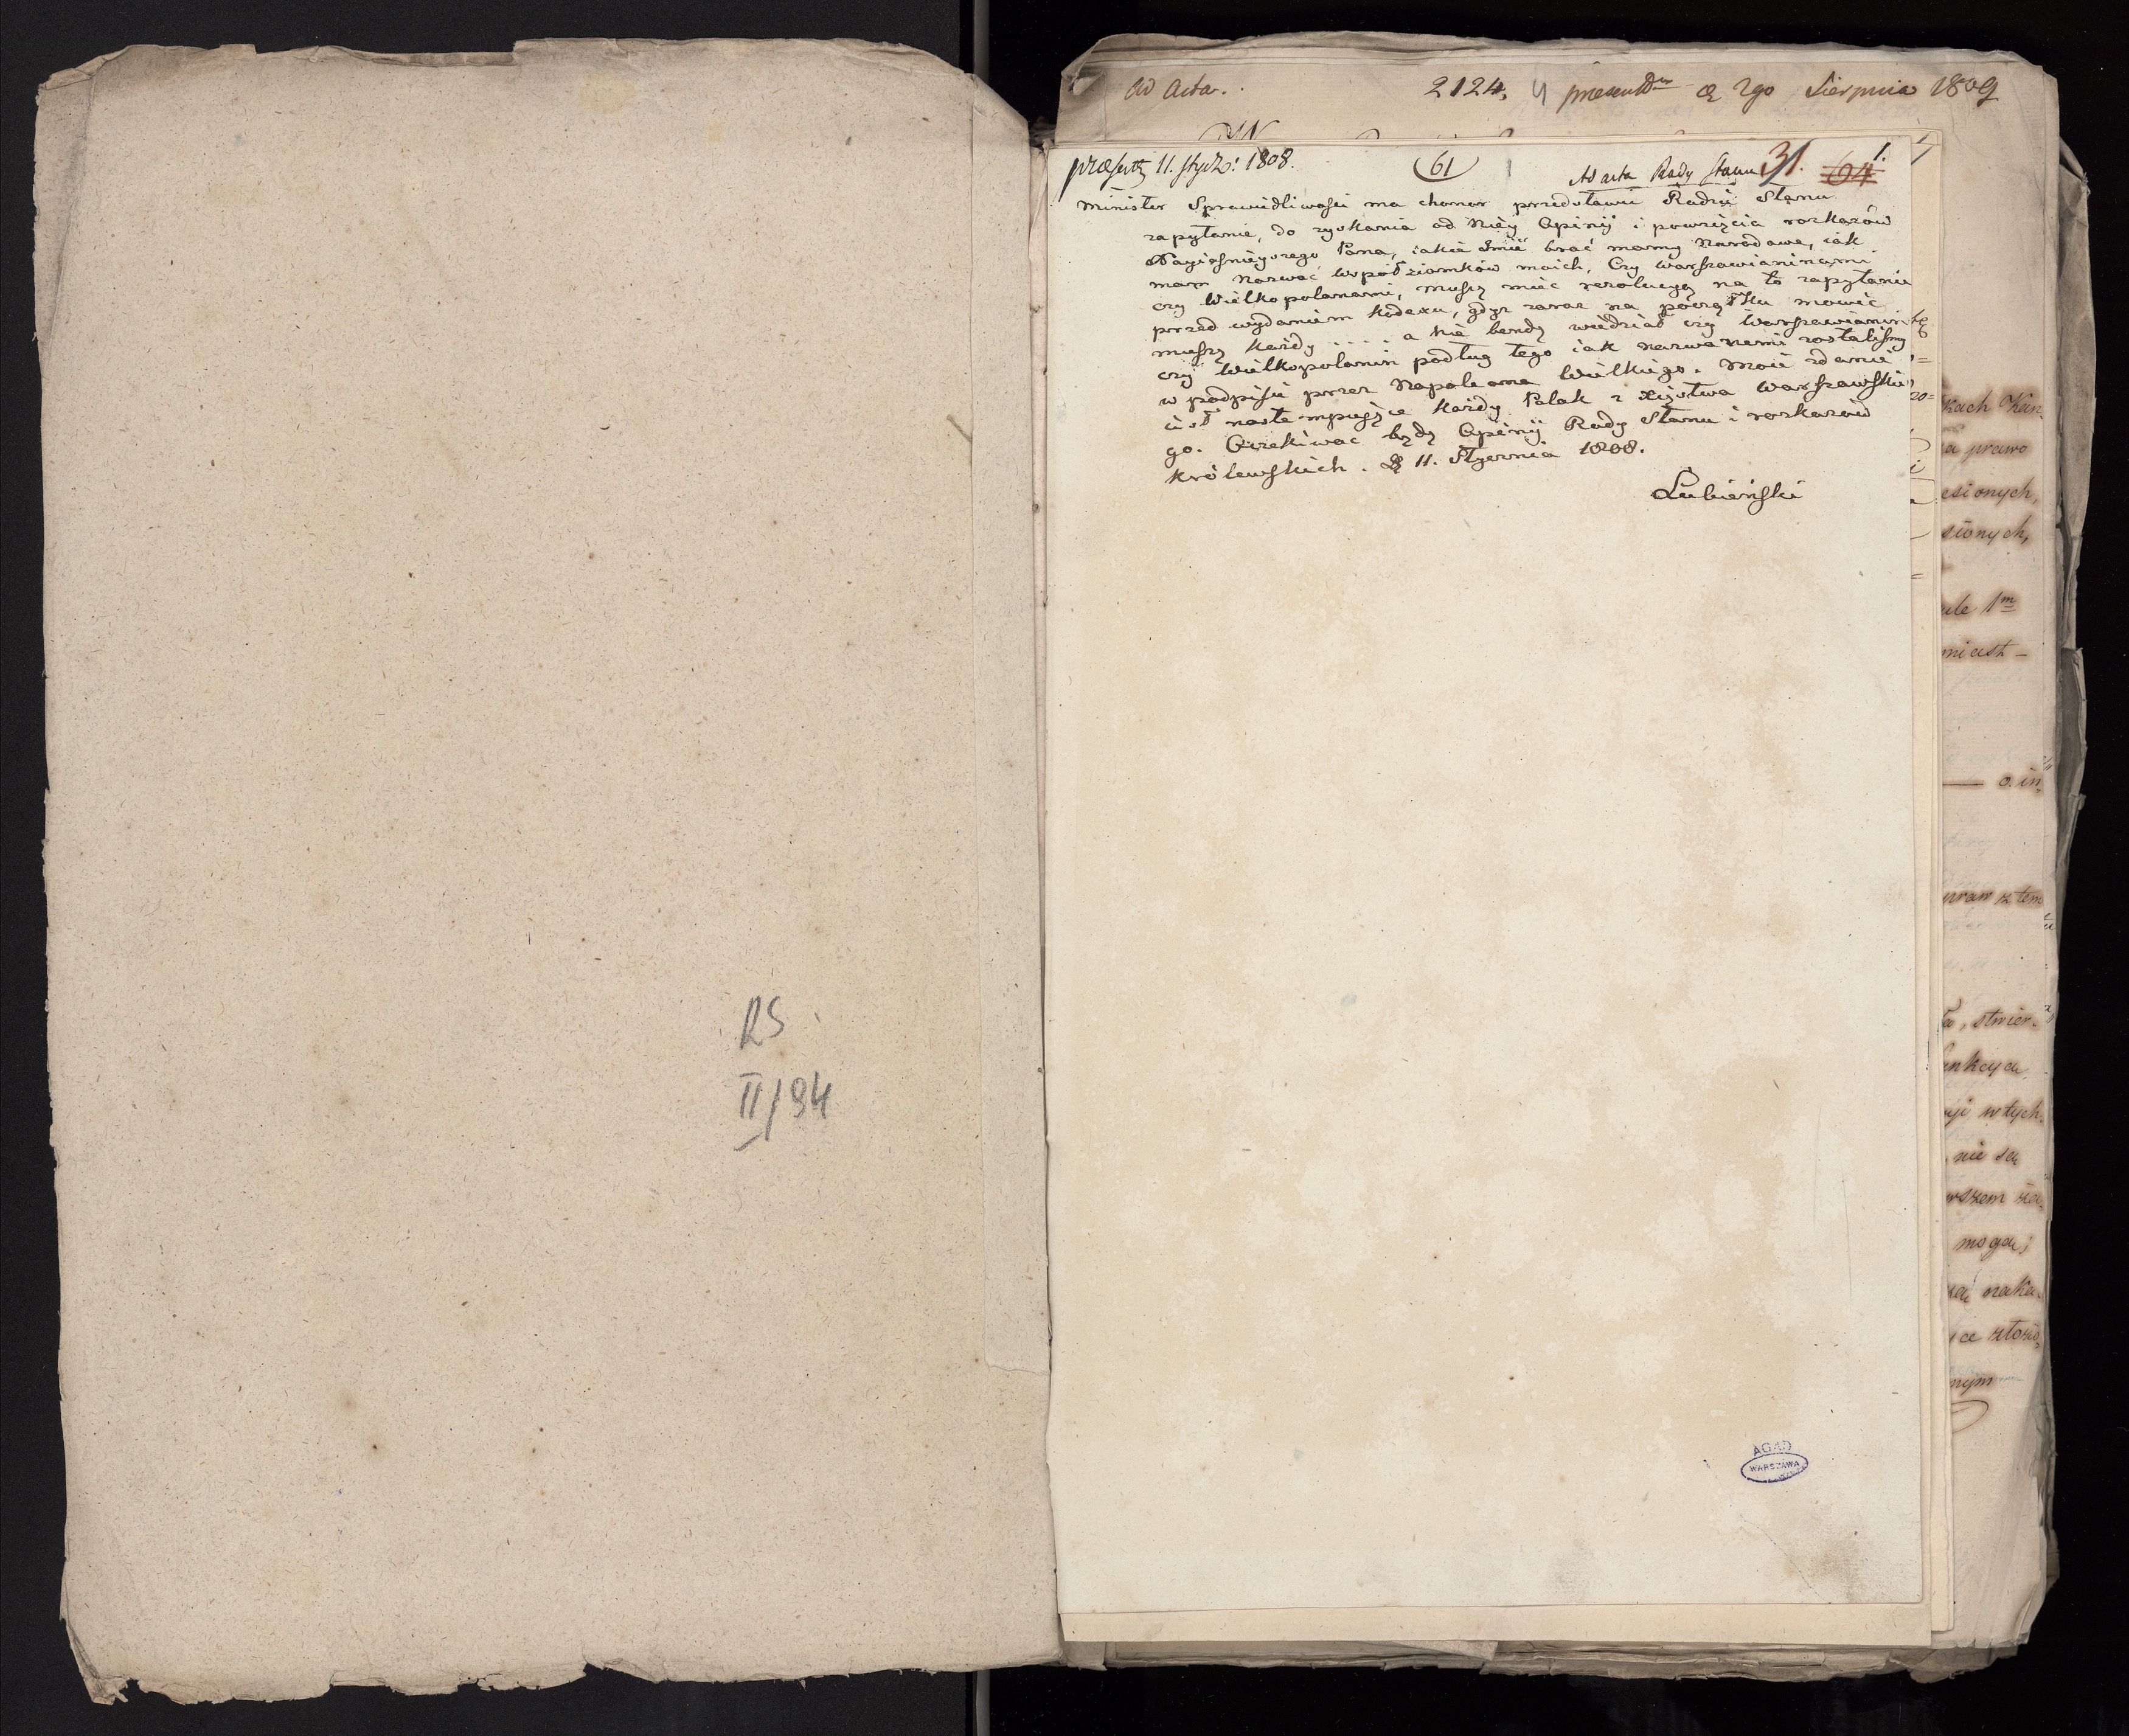 RS
II/94
ad acta.
2124, presentm d 2go Sierpnia 1809
præsentt 11. stycz: 1808.
61
Ad acta Rady Stanu
31.
64
1.
Minister Sprawiedliwości ma chonor przedstawić Radzie Stanu
zapytanie, do zyskania od Niey Opinij i powzięcia rozkazów
Nayiaśnieyszego Pana, iakie Jmie brać mamy Narodowe, iak
mam nazwać współziomków moich, Czy Warszawianinami
czy Wielkopolanami, muszę mieć rezolucyą na to zapytanie
przed wydaniem Kodexu, gdyż zaraz na początku mowić
muszę każdy .... a nie bendę wiedział czy Warszawianin
czy Wielkopolanin podług tego iak nazwanemi zostaliśmy
w podpisie przez Napoleona Wielkiego. Moie zdanie
iest nastempuiące każdy Polak z Xięstwa Warszawskie
go. Oczekiwac będę Opinij Rady Stanu i rozkazów
Królewskich. D 11. Stycznia 1808.
Lubieński
kach Kan.
a prawo
esionych,
sionych,
ule 1m
miast –
o. in.
praw z tem
, stwier.
unkcya
w tych.
nie są
mogą;
naka.
AGAD
WARSZAWA